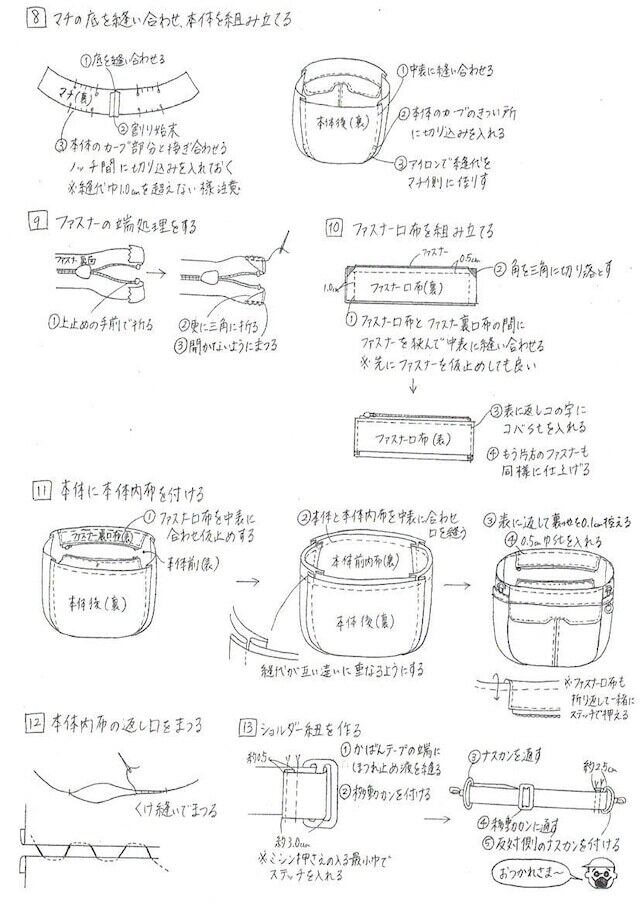 8 マチの底を縫い合わせ、本体を組み立てる
①底を縫い合わせる
マチ(裏)
②割り始末
③本体のカーブ部分と接ぎ合わせる
ノッチ間に切り込みを入れておく
※縫代巾1.0cmを超えない様注意
本体後(裏)
①中表に縫い合わせる
②本体のカーブのきつい所
に切り込みを入れる
③アイロンで縫代を
マチ側に倒す
9 ファスナーの端処理をする
ファスナー裏面
①上止めの手前で折る
②更に三角に折る
③開かないようにまつる
10 ファスナー口布を組み立てる
ファスナー
0.5cm
1.0cm
ファスナー口布(裏)
②角を三角に切り落とす
①ファスナー口布とファスナー裏口布の間に
ファスナーを挟んで中表に縫い合わせる
※先にファスナーを仮止めしても良い
ファスナー口布(表)
③表に返しコの字に
コバstを入れる
④もう片方のファスナーも
同様に仕上げる
11 本体に本体内布を付ける
①ファスナー口布を中表に
合わせ仮止めする
ファスナー裏口布(表)
本体前(表)
本体後(裏)
②本体と本体内布を中表に合わせ
口を縫う
本体前内布(裏)
本体後(裏)
縫代が互い違いに重なるようにする
③表に返して裏地を0.1cm控える
④0.5cm巾stを入れる
※ファスナー口布も
折り返して一緒に
ステッチで押える
12 本体内布の返し口をまつる
くけ縫いでまつる
13 ショルダー紐を作る
約0.5
約3.0cm
①かばんテープの端に
ほつれ止め液を塗る
②移動カンを付ける
※ミシン押さえの入る最小巾で
ステッチを入れる
③ナスカンを通す
約2.5cm
④移動カンに通す
⑤反対側のナスカンを付ける
おつかれさま〜